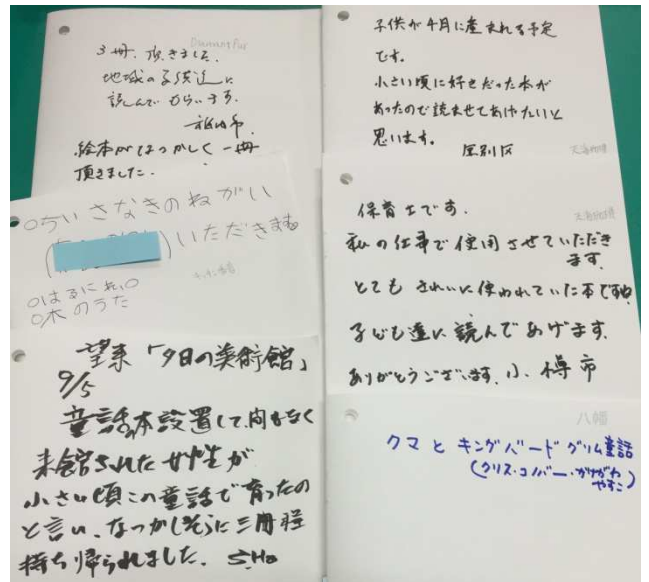 3冊、頂きました。
地域の子供達に
読んでもらいます。
絵本がなつかしく一冊
頂きました。
○ちいさなきのねがい
( )いただきます
○はるにれ。○
○木のうた
望来「夕日の美術館」
9/5
童話本設置して間もなく
来館された女性が
小さい頃この童話で育ったの
と言い、なつかしそうに三冊程
持ち帰られました。 S.Ho
子供が4月に産まれる予定
です。
小さい頃に好きだった本が
あったので読ませてあげたいと
思います。 厚別区
保育士です。
私の仕事で使用させていただき
ます。
とてもきれいに使われていた本ですね
子ども達に読んであげます。
ありがとうございます。小樽市
八幡
クマとキングバード グリム童話
(クリス・コノバー・かけがわ
やすこ)